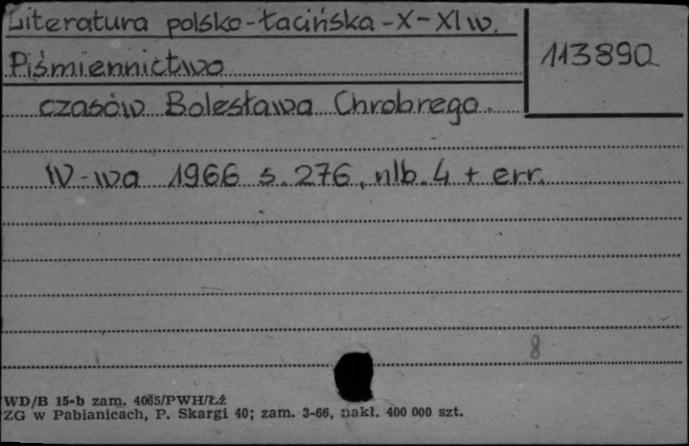 Literatura polsko-łacińska-X-XI w.
113890
Piśmiennictwo
czasów Bolesława Chrobrego.
W-wa 1966 s. 276, nlb. 4 + err.
8
WD/B 15-b zam. 4065/PWH/Łź
ZG w Pabianicach, P. Skargi 40; zam. 3-66, nakł. 400 000 szt.